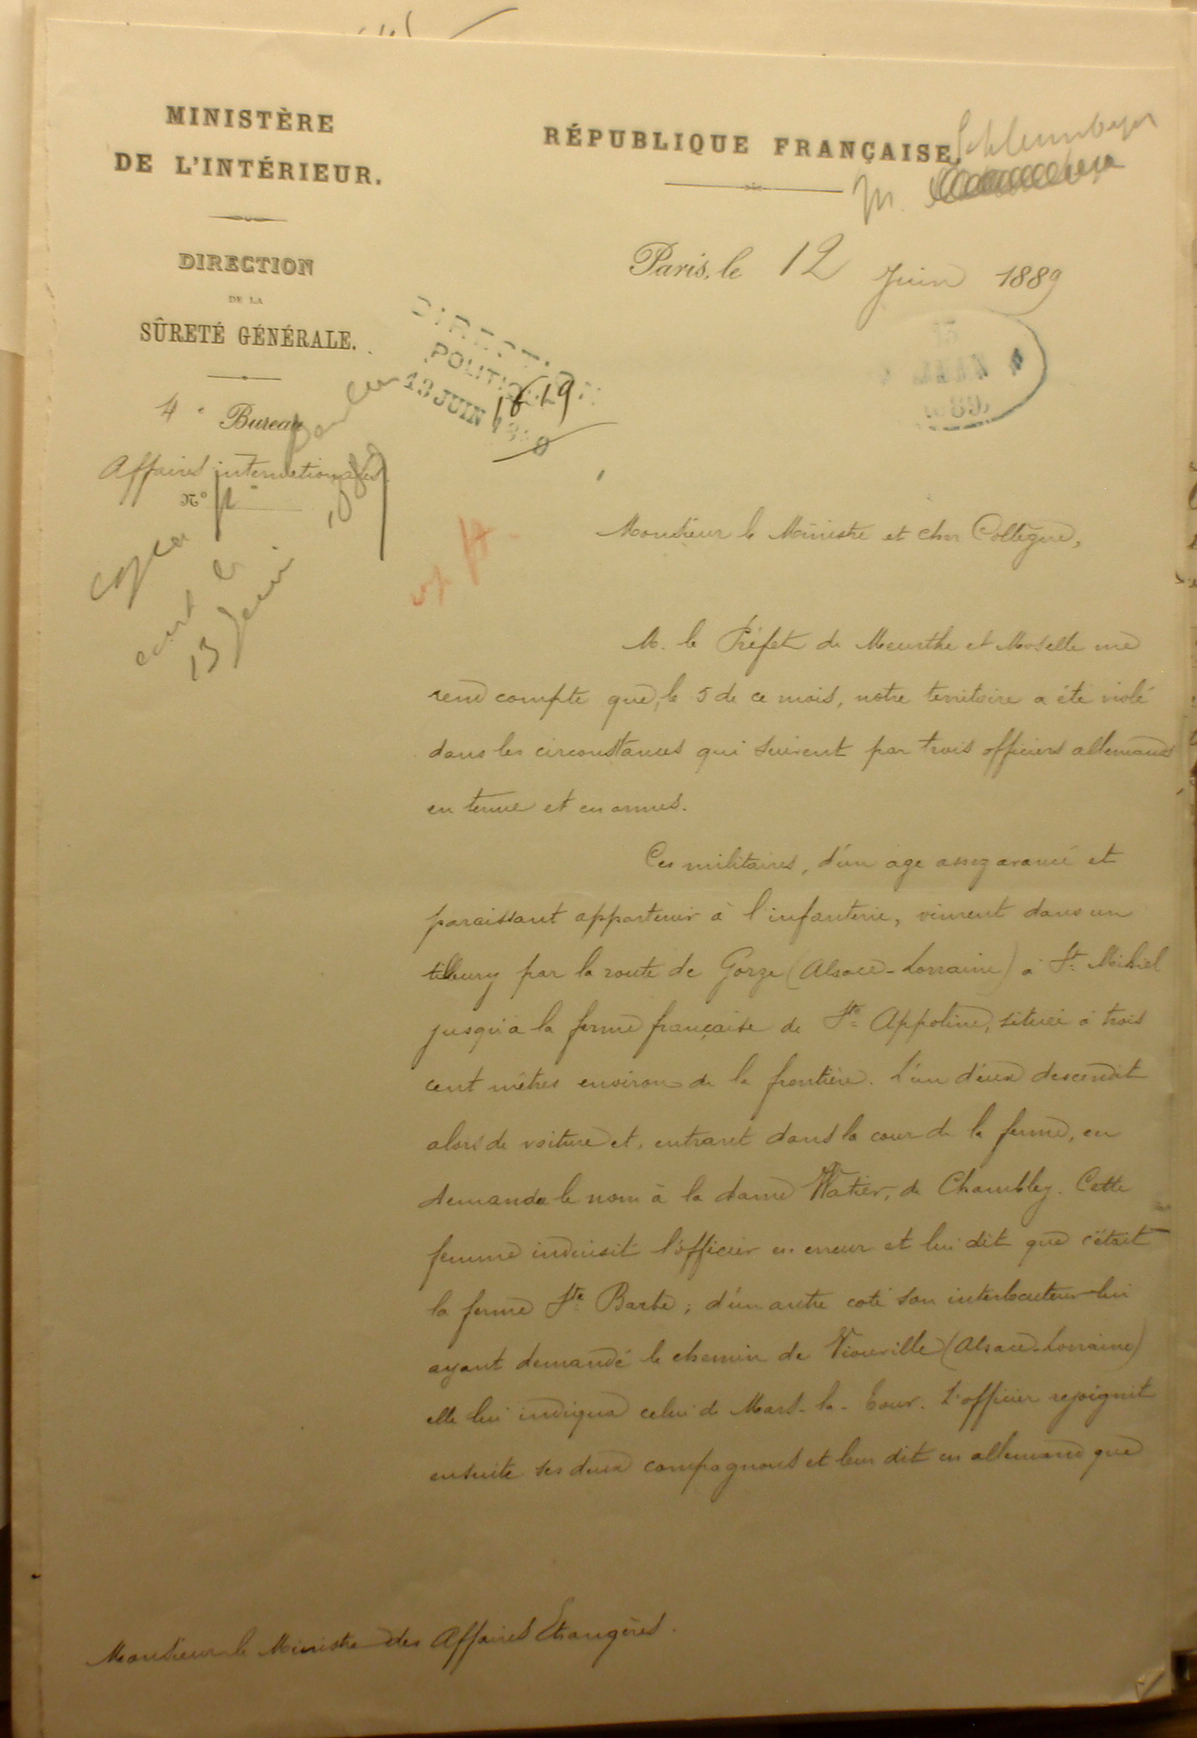 MINISTÈRE
DE L'INTÉRIEUR.
DIRECTION
DE LA
SÛRETÉ GÉNÉRALE.
4e Bureau
Affaires internationales
N°
RÉPUBLIQUE FRANÇAISE.
Schlumberger
M.
Paris, le 12 Juin 1889
DIRECTION
POLITIQUE
13 JUIN 1889
copie
13 Juin 1889
Monsieur le Ministre et cher Collègue,
M. le Préfet de Meurthe et Moselle me
rend compte que, le 5 de ce mois, notre territoire a été violé
dans les circonstances qui suivent par trois officiers allemands
en tenue et en armes.
Ces militaires, d'un âge assez avancé et
paraissant appartenir à l'infanterie, vinrent dans un
tilbury par la route de Gorze (Alsace-Lorraine) à St. Mihiel
jusqu'à la ferme française de Ste Appoline, située à trois
cent mètres environ de la frontière. L'un d'eux descendit
alors de voiture et, entrant dans la cour de la ferme, en
demanda le nom à la dame Watier, de Chambley. Cette
femme induisit l'officier en erreur et lui dit que c'était
la ferme Ste Barbe ; d'un autre coté son interlocuteur lui
ayant demandé le chemin de Vionville (Alsace-Lorraine)
elle lui indiqua celui de Mars-la-Tour. L'officier rejoignit
ensuite ses deux compagnons et leur dit en allemand que
Monsieur le Ministre des Affaires Etrangères.